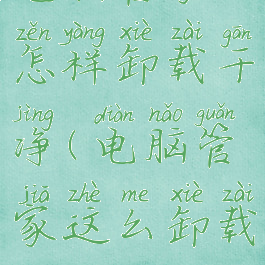 zěn yàng xiè zài gān
怎样卸载干
jìng diàn nǎo guǎn
净(电脑管
jiā zhè me xiè zài
家这么卸载